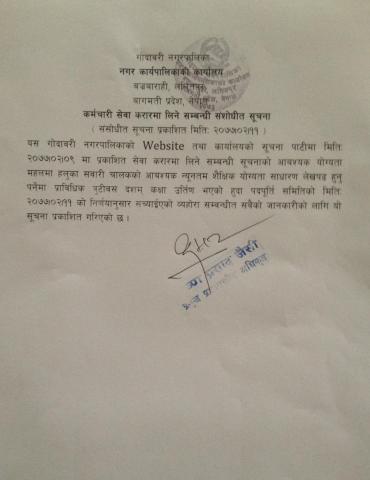 गोदावरी नगरपालिका
नगर कार्यपालिकाको कार्यालय
बज्रबाराही, ललितपुर
बागमती प्रदेश, नेपाल
कर्मचारी सेवा करारमा लिने सम्बन्धी संशोधीत सूचना
( संसोधीत सूचना प्रकाशित मिति: २०७७।०२।११ )
यस गोदावरी नगरपालिकाको Website तथा कार्यालयको सूचना पाटीमा मिति:
२०७७।०२।०९ मा प्रकाशित सेवा करारमा लिने सम्बन्धी सूचनाको आवश्यक योग्यता
महलमा हलुका सवारी चालकको आवश्यक न्यूनतम शैक्षिक योग्यता साधारण लेखपढ हुनु
पर्नेमा प्राविधिक त्रुटीवस दशम् कक्षा उर्तिण भएको हुदा पदपुर्ति समितिको मिति:
२०७७।०२।११ को निर्णयानुसार सच्याईएको व्यहोरा सम्बन्धीत सबैको जानकारीको लागि यो
सूचना प्रकाशित गरिएको छ ।
प्रसाद जैसी
प्रमुख प्रशासकीय अधिकृत